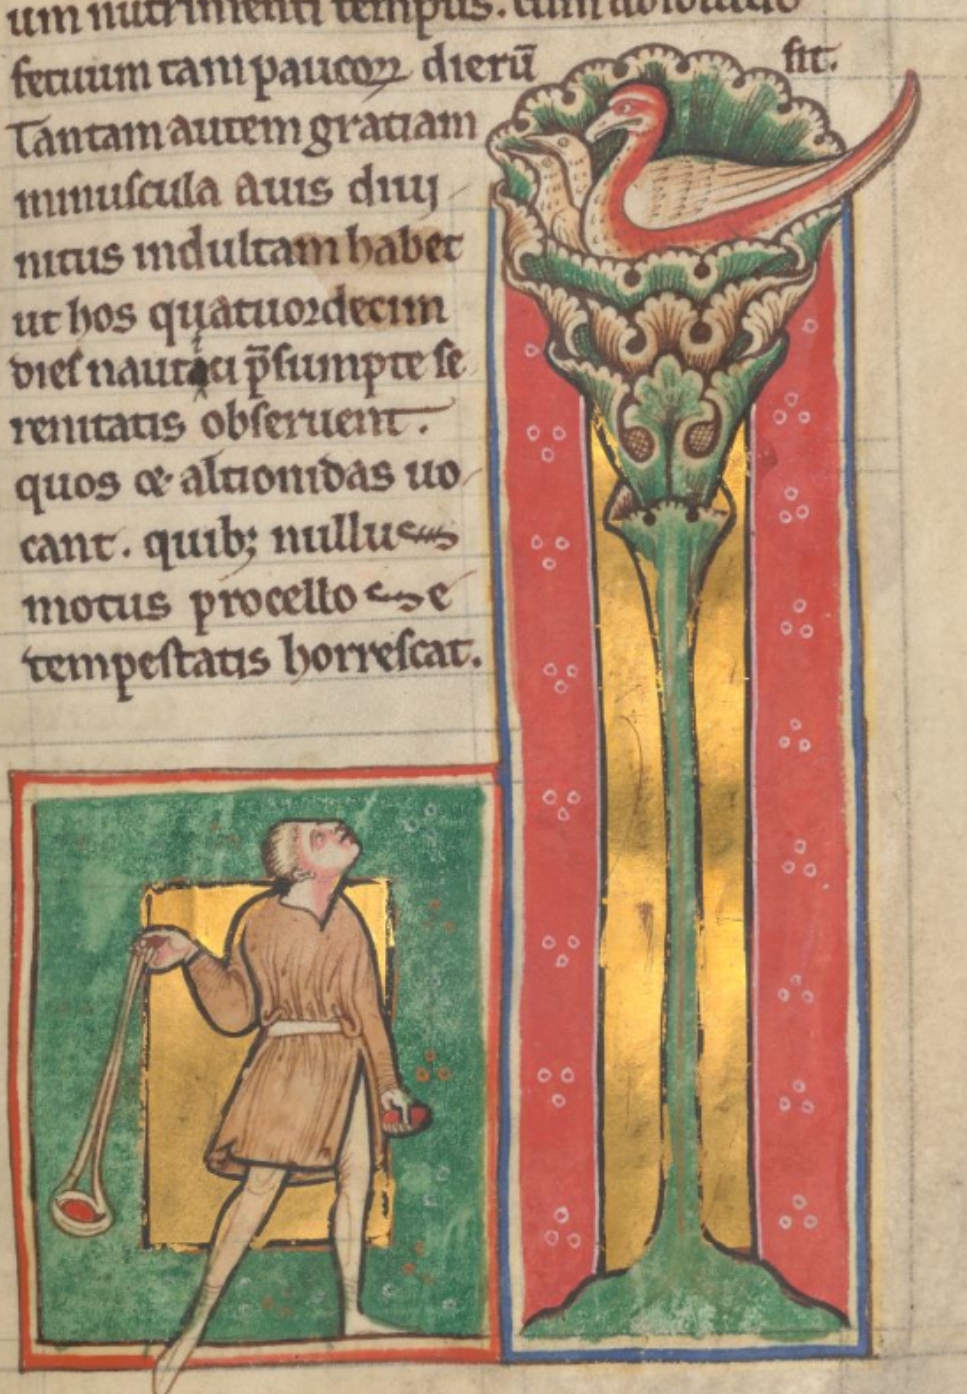 um nutrimenti tempus. cum absolutio
fetuum tam paucoꝝ dierū fit.
Tantam autem gratiam
minuscula auis diui
nitus indultam habet
ut hos quatuordecim
dies nautici p̄sumpte se
renitatis obseruent.
quos & altionidas uo
cant. quibꝫ nullus
motus procello e
tempestatis horrescat.